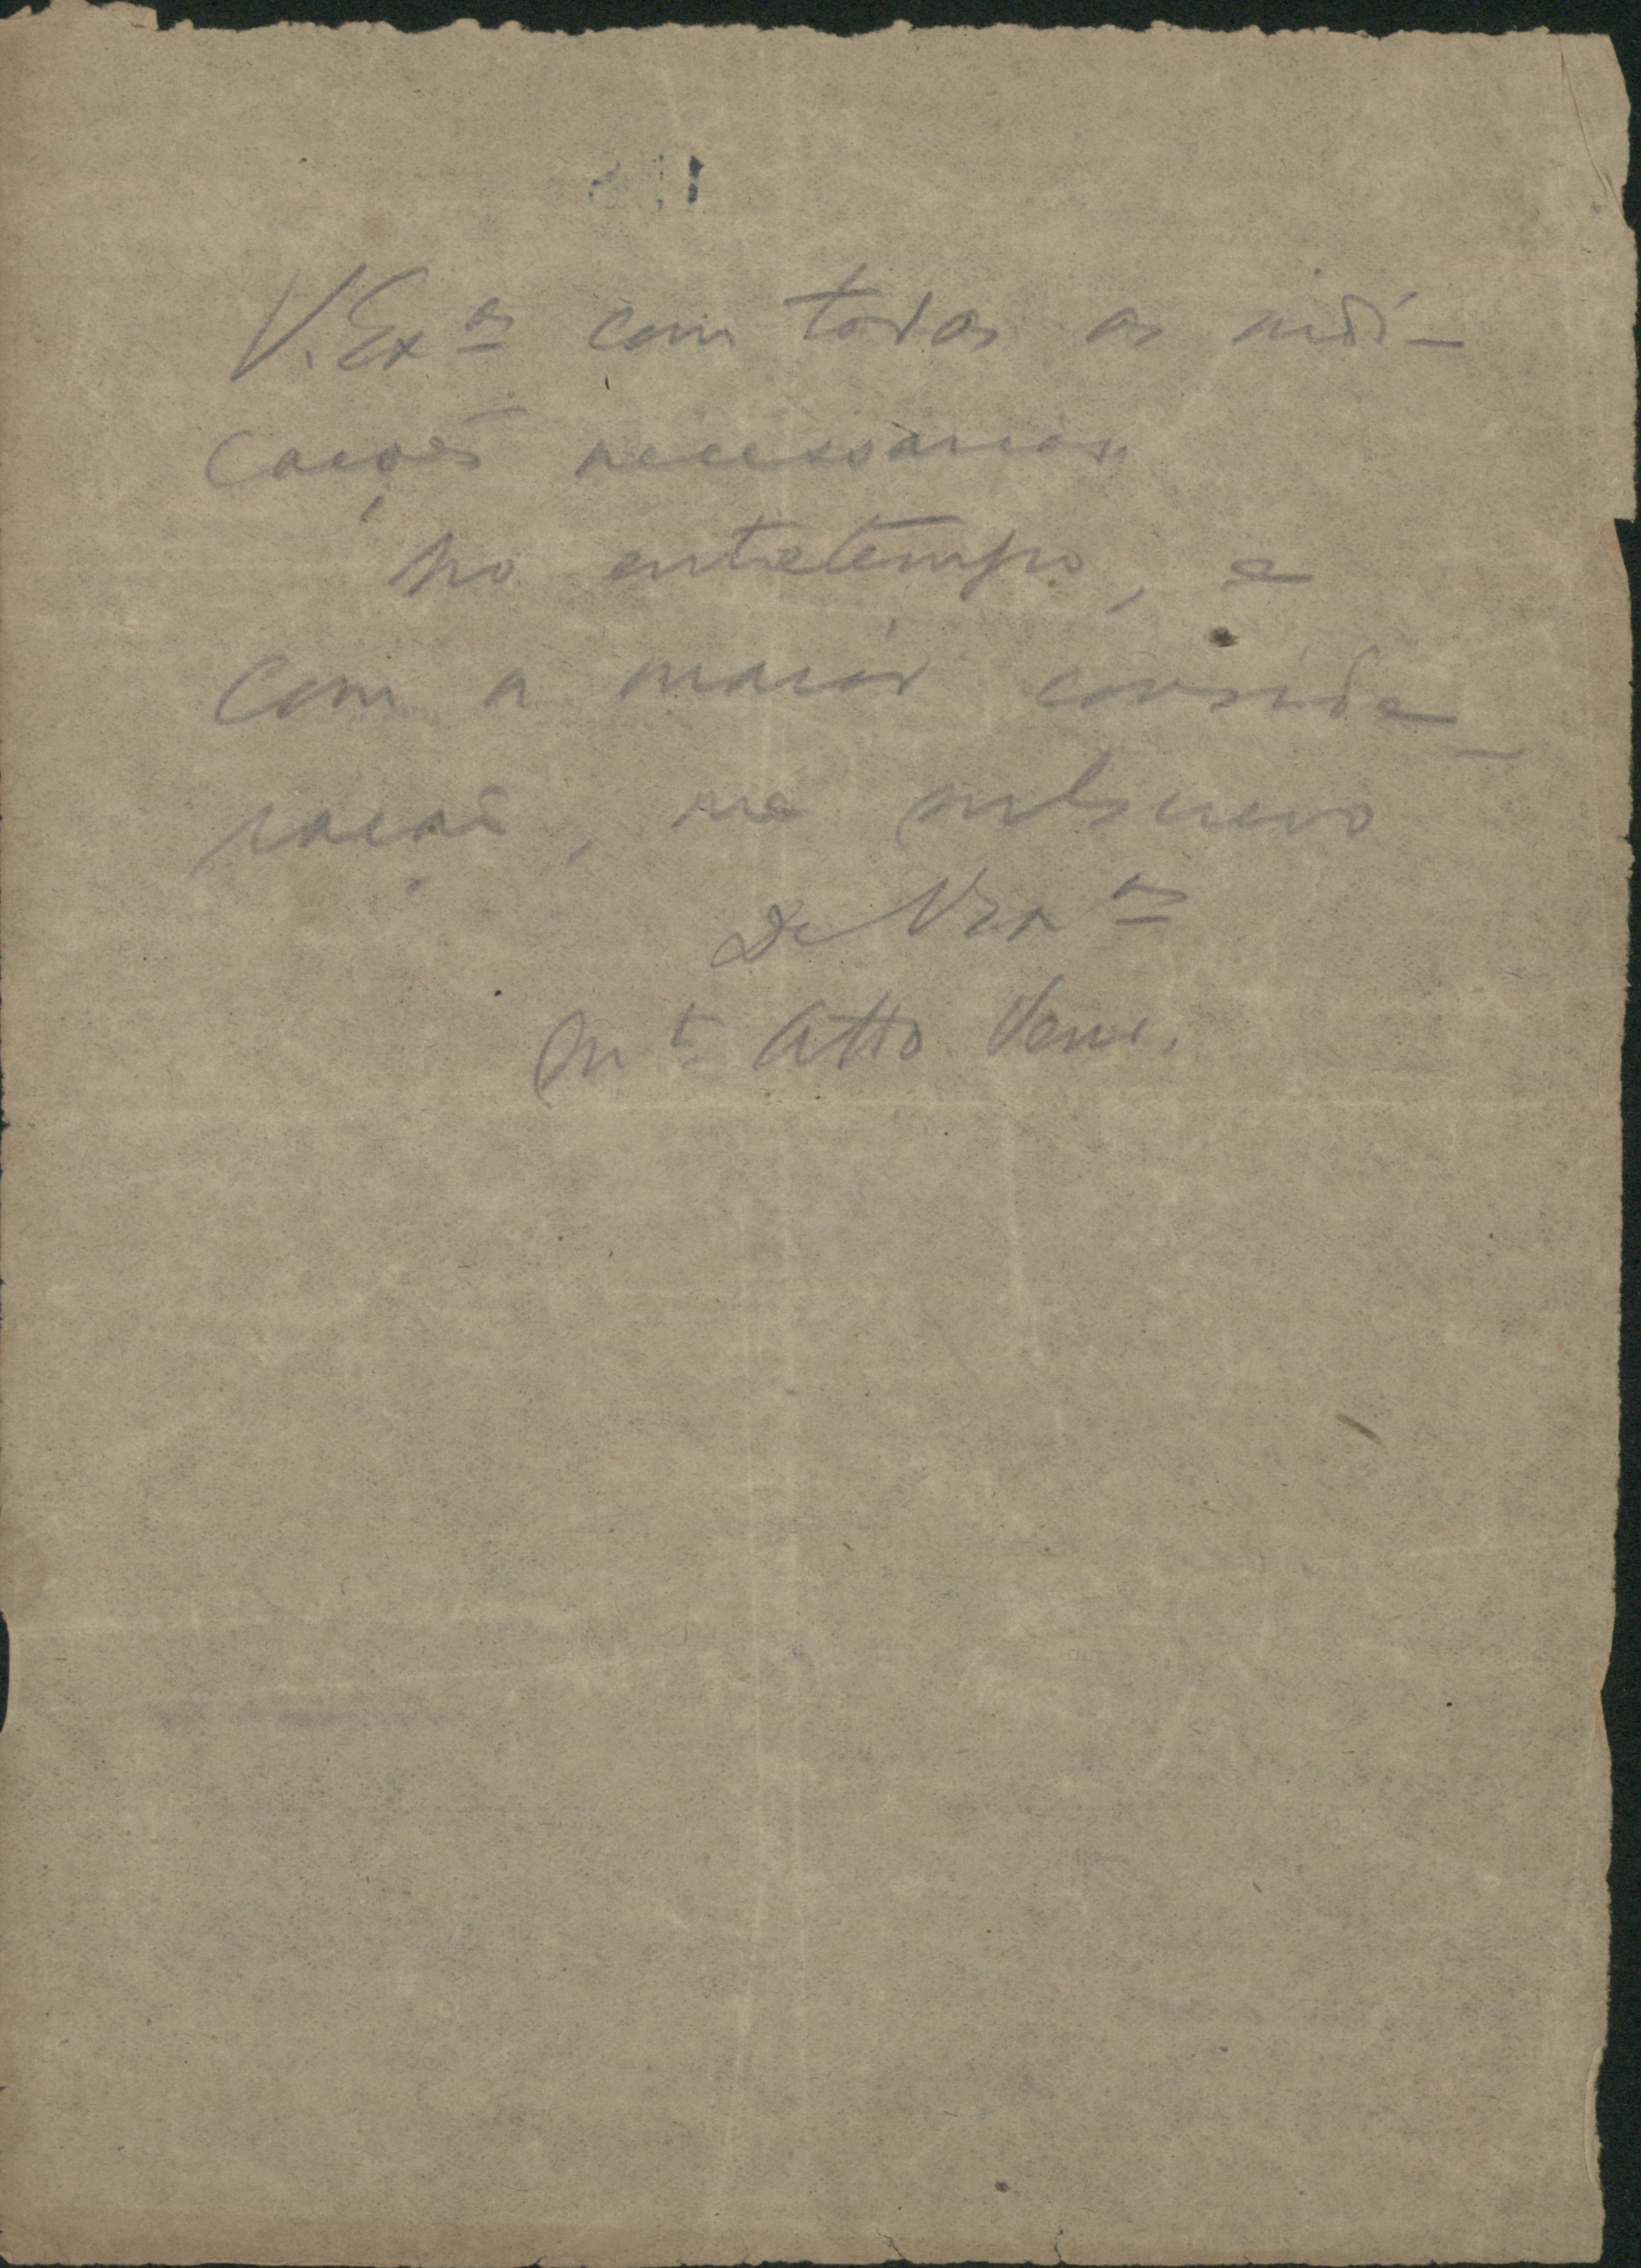 V. Ex.as com todas as indi-
cações necessarias.
No entretempo, e
com a maior conside-
ração, me subscrevo
De V Ex as
Mt. Atto. Venr.